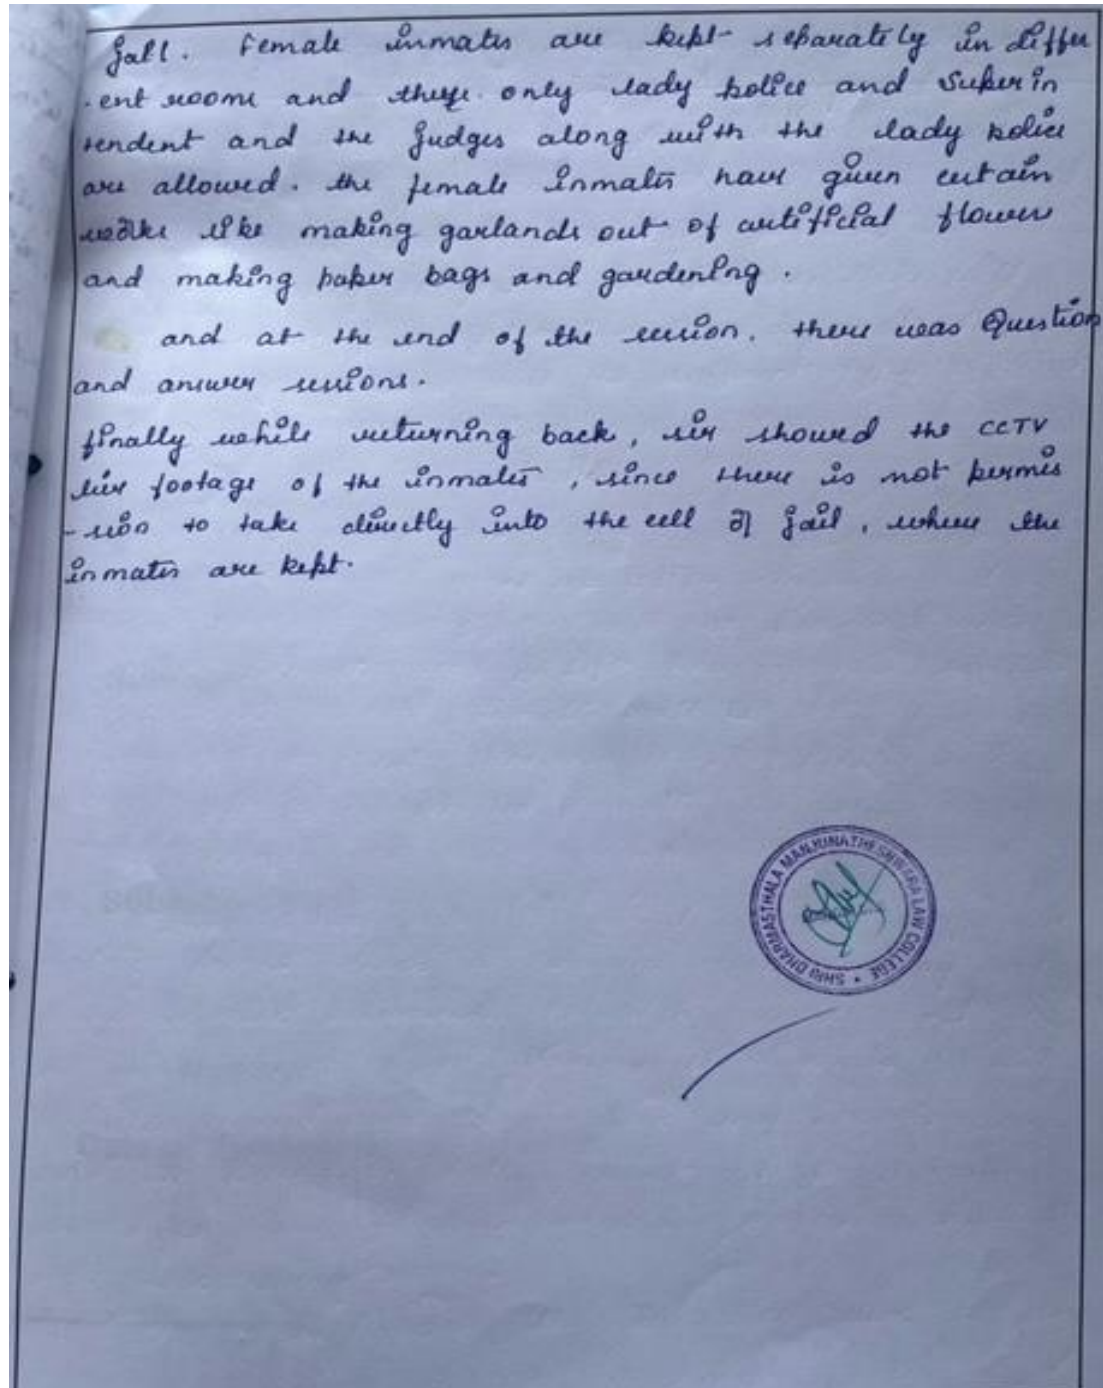 jail. Female inmates are kept separately in differ
-ent rooms and there only lady police and Superin
tendent and the judges along with the lady police
are allowed. the female inmates have given certain
works like making garlands out of artificial flowers
and making paper bags and gardening.
and at the end of the session. there was Question
and answer sessions.
finally while returning back, sir showed the CCTV
live footage of the inmates, since there is not permis
-sion to take directly into the cell of jail, where the
inmates are kept.
SHRI DHARMASTHALA MANJUNATHESHWARA LAW COLLEGE